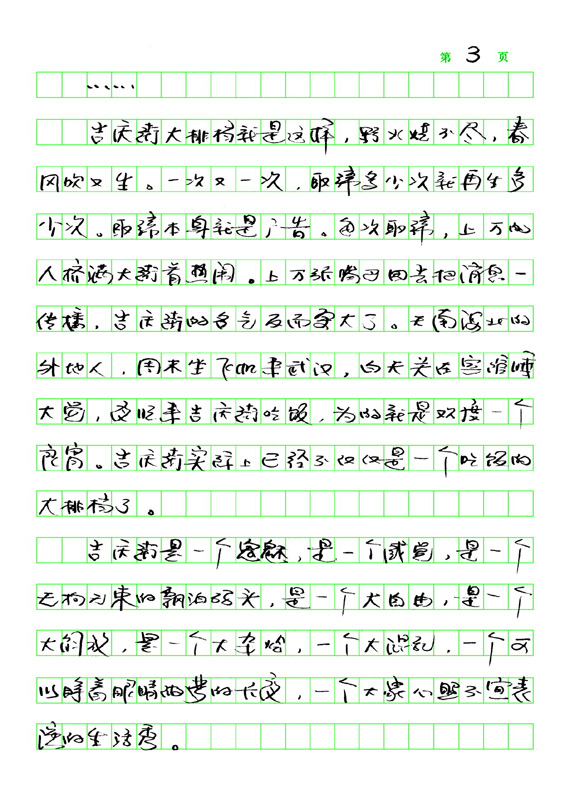 第 3 页
……
吉庆街大排档就是这样，野火烧不尽，春
风吹又生。一次又一次，取缔多少次就再生多
少次。取缔本身就是广告。每次取缔，上万的
人挤满大街看热闹。上万张嘴回去把消息一
传播，吉庆街的名气反而更大了。天南海北的
外地人，周末坐飞机来武汉，白天关在宾馆睡
大觉，夜晚来吉庆街吃饭，为的就是双接一个
良宵。吉庆街实际上已经不仅仅是一个吃饭的
大排档了。
吉庆街是一个鬼魅，是一个感觉，是一个
无拘无束的漂泊码头，是一个大自由，是一个
大解放，是一个大杂烩，一个大混乱，一个可
以睁着眼睛做梦的长夜，一个大家心照不宣表
演的生活秀。